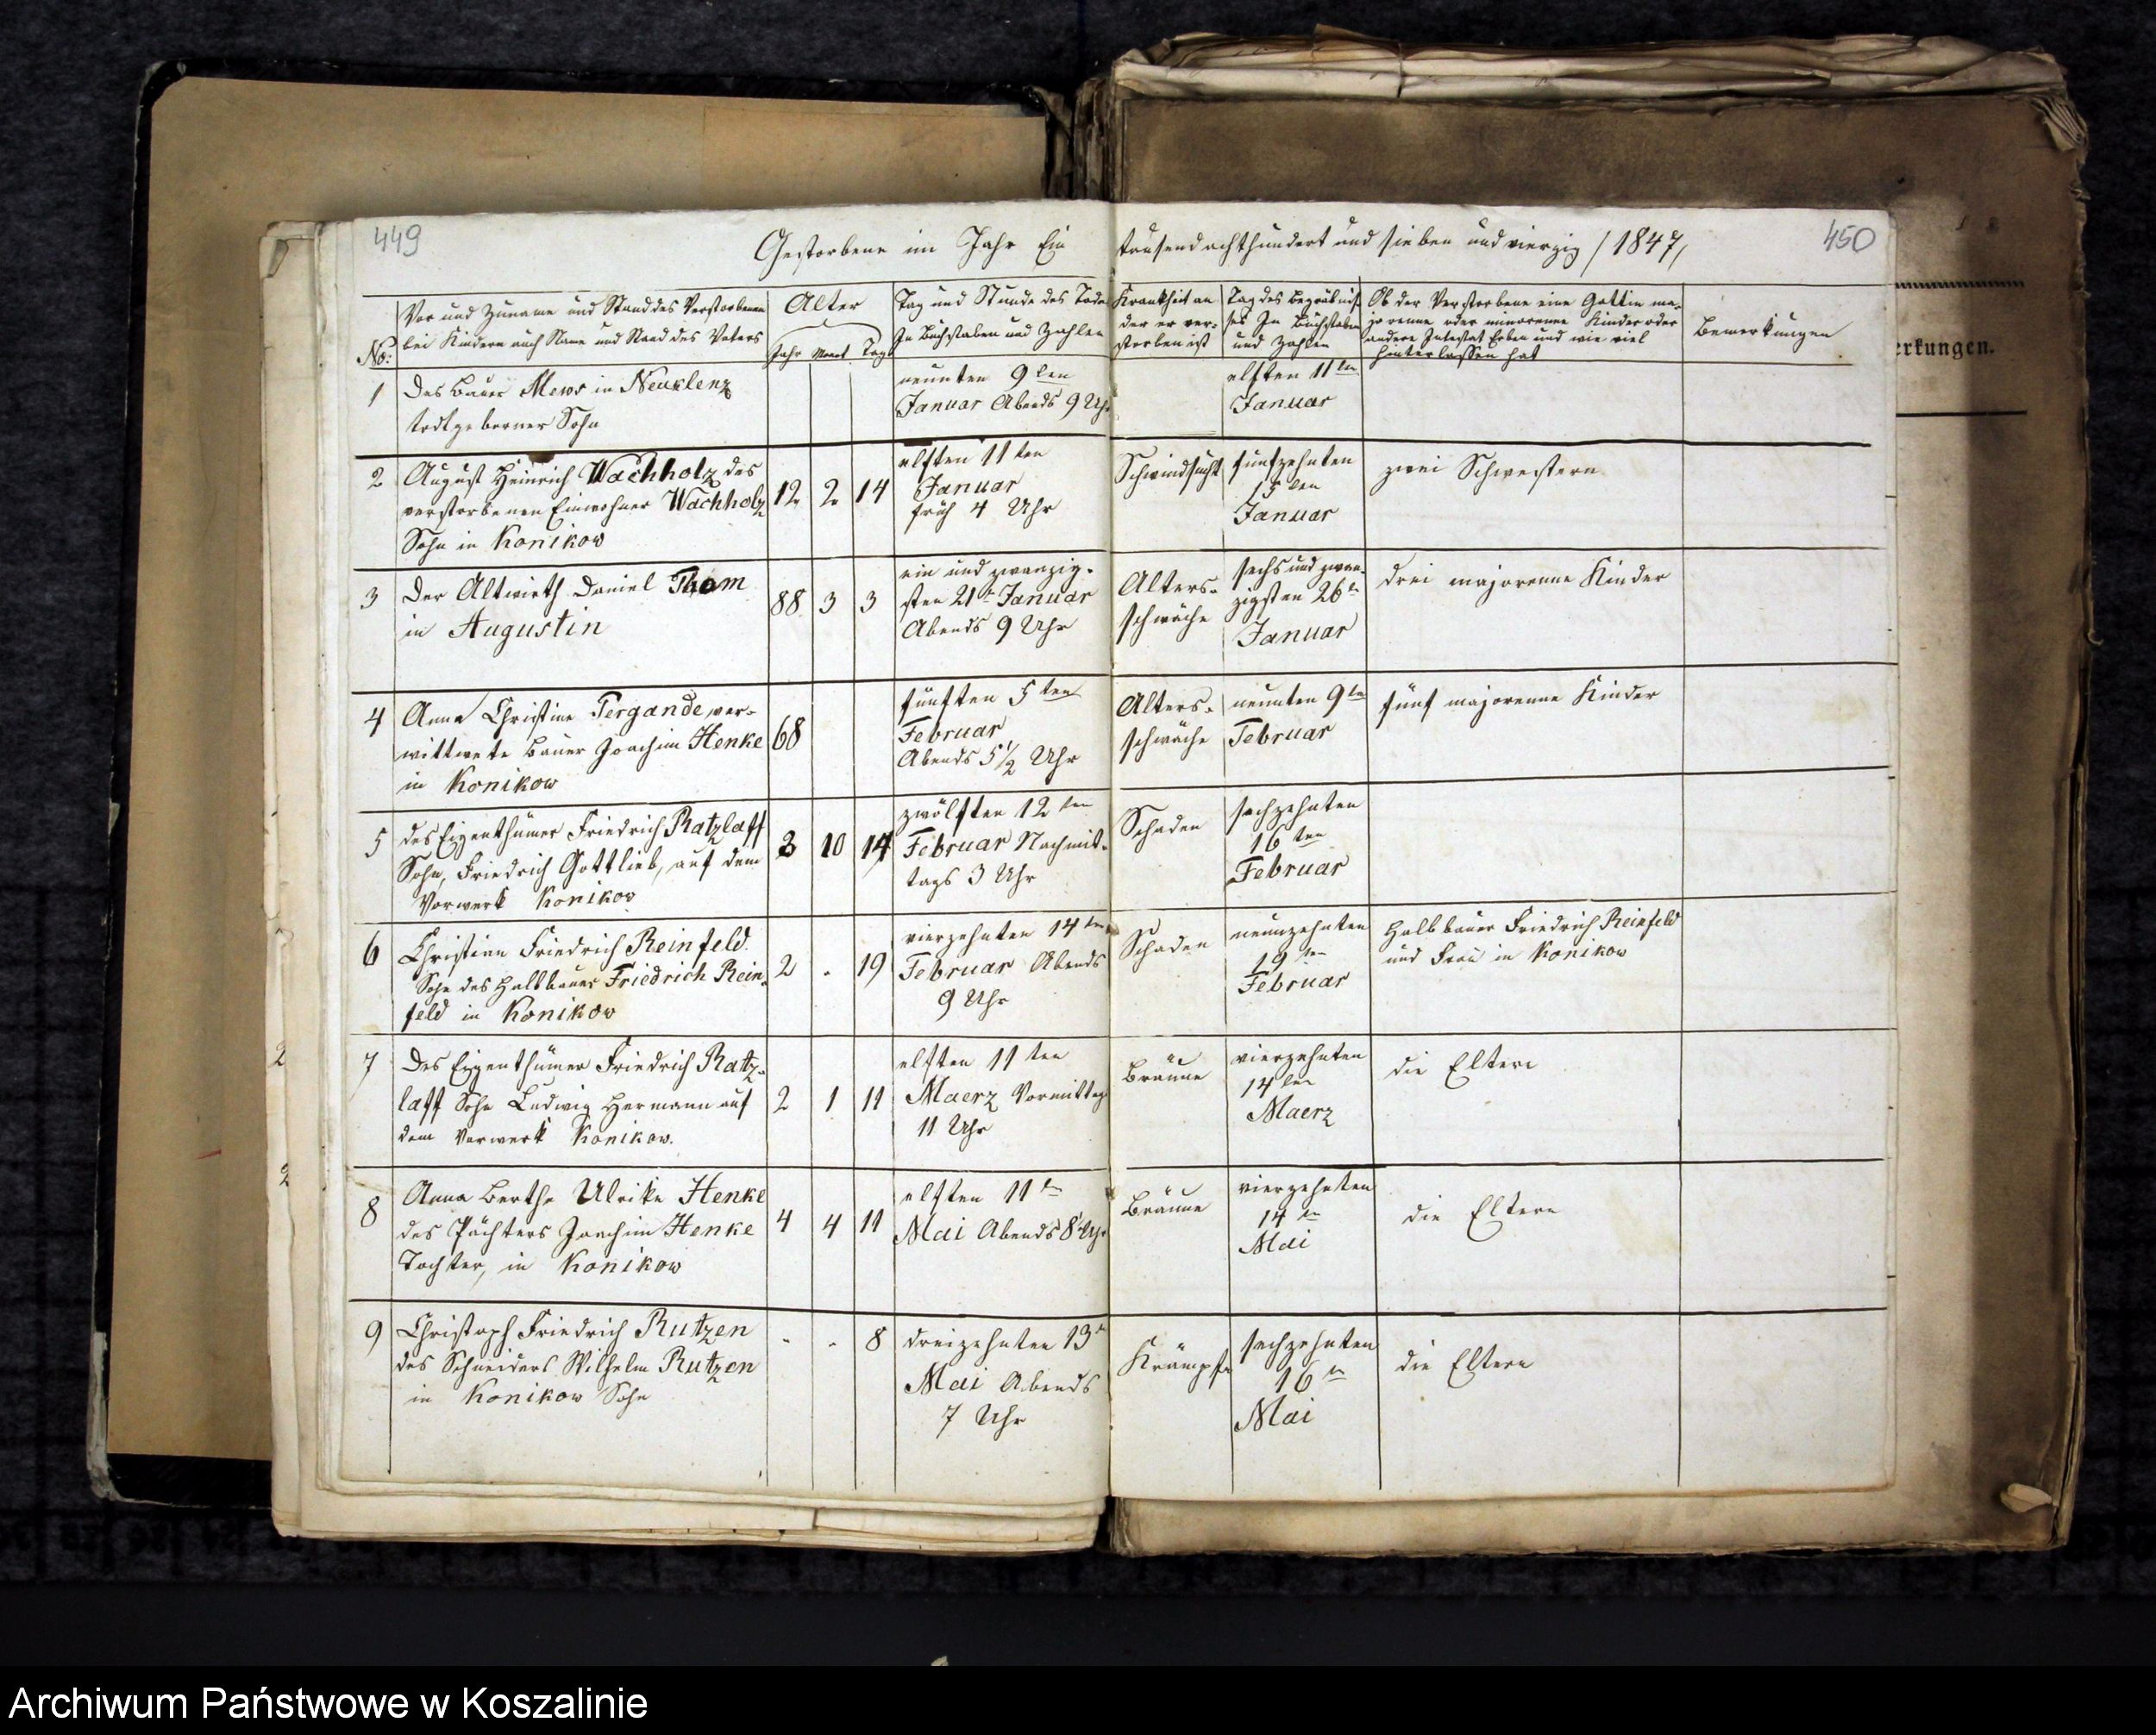 449
450
Gestorbene im Jahr Ein tausend achthundert und sieben und vierzig /1847/
No:
Vor und Zuname und Stand des Verstorbenen
bei Kindern auch Name und Stand des Vaters
Alter
Jahr Monat Tag
Tag und Stunde des Todes
In Buchstaben und Zahlen
Krankheit an
der er ver-
storben ist
Tag des Begräbnis-
ses In Buchstaben
und Zahlen
Ob der Verstorbene eine Gattin ma-
jorenne oder minorenne Kinder oder
andere Intestat Erben und wie viel
hinterlassen hat
Bemerkungen
erkungen.
1
Des Bauer Mews in Neuklenz
todtgeborner Sohn
neunten 9ten
Januar Abends 9 Uhr
elften 11ten
Januar
2
August Heinrich Wachholz des
verstorbenen Einwohner Wachholz
Sohn in Konikow
12 2 14
elften 11ten
Januar
früh 4 Uhr
Schwindsucht
funfzehnten
15ten
Januar
zwei Schwestern
3
Der Altwirth Daniel Thom
in Augustin
88 3 3
ein und zwanzig-
sten 21t Januar
Abends 9 Uhr
Alters-
schwäche
sechs und zwan-
zigsten 26tn
Januar
drei majorenne Kinder
4
Anna Christine Tergande, ver-
wittwete Bauer Joachim Henke
in Konikow
68
fünften 5ten
Februar
Abends 5 1/2 Uhr
Alters-
schwäche
neunten 9tn
Februar
fünf majorenne Kinder
5
des Eigenthümer Friedrich Ratzlaff
Sohn, Friedrich Gottlieb, auf dem
Vorwerk Konikow
3 10 14
zwölften 12ten
Februar Nachmit-
tags 3 Uhr
Schaden
sechzehnten
16ten
Februar
6
Christian Friedrich Reinfeld.
Sohn des Halbbauer Friedrich Rein-
feld in Konikow
2 - 19
vierzehnten 14ten
Februar Abends
9 Uhr
Schaden
neunzehnten
19ten
Februar
Halbbauer Friedrich Reinfeld
und Frau in Konikow
7
Des Eigenthümer Friedrich Ratz-
laff Sohn Ludwig Hermann auf
dem Vorwerk Konikow.
2 1 11
elften 11ten
Maerz Vormittags
11 Uhr
Bräune
vierzehnten
14ten
Maerz
die Eltern
8
Anna Bertha Ulrike Henke
des Pächters Joachim Henke
Tochter, in Konikow
4 4 11
elften 11tn
Mai Abends 8 Uhr
Bräune
vierzehnten
14tn
Mai
die Eltern
9
Christoph Friedrich Rutzen
des Schneiders Wilhelm Rutzen
in Konikow Sohn
- - 8
dreizehnten 13t
Mai Abends
7 Uhr
Krämpfe
sechzehnten
16tn
Mai
die Eltern
2
2
Archiwum Państwowe w Koszalinie